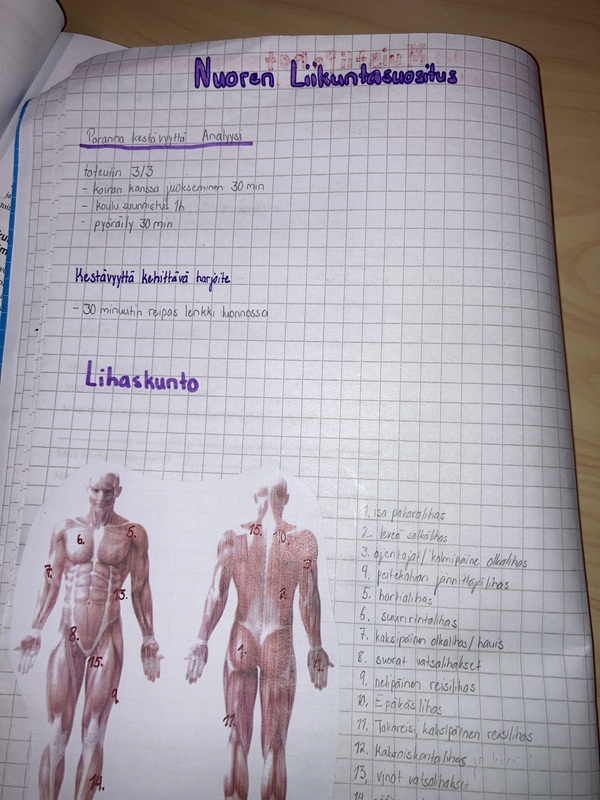 Nuoren Liikuntasuositus
Paranna kestävyyttä Analyysi
toteutin 3/3
- koiran kanssa juokseminen 30 min
- koulu suunnistus 1h
- pyöräily 30 min
Kestävyyttä kehittävä harjoite
- 30 minuutin reipas lenkki luonnossa
Lihaskunto
6.
5.
7.
13.
8.
15.
9.
14.
15.
10.
3.
2.
1.
11.
1. iso pakaralihas
2. leveä selkälihas
3. ojentajat/kolmipäine olkalihas
4. peitekalvon jännittäjälihas
5. hartialihas
6. suuri rintalihas
7. kaksipäinen olkalihas/hauis
8. suorat vatsalihakset
9. nelipäinen reisilihas
10. Epäkäslihas
11. Takareisi, kaksipäinen reisilihas
12. Kaksoiskantalihas
13. vinot vatsalihakset
14.